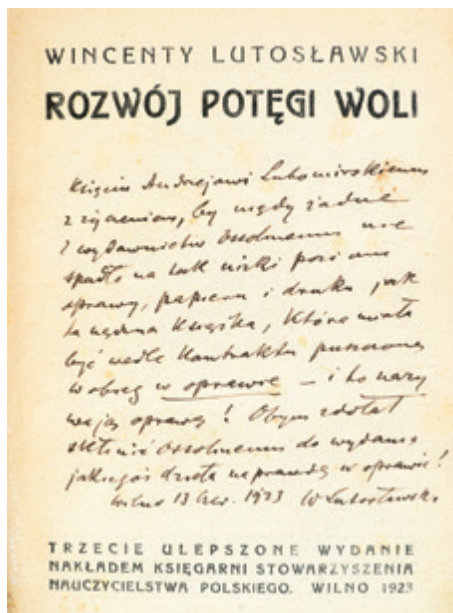 WINCENTY LUTOSŁAWSKI
ROZWÓJ POTĘGI WOLI
Księciu Andrzejowi Lubomirskiemu
z życzeniem, by nigdy żadne
z wydawnictw Ossolineum nie
spadło na tak niski poziom
oprawy, papieru i druku jak
ta nędzna książka, która miała
być wedle kontraktu puszczona
w obieg w oprawie – i to nazy
wają oprawą! Obym zdołał
skłonić Ossolineum do wydania
jakiegoś dzieła naprawdę w oprawie!
Wilno 13 Czer. 1923 W Lutosławski
TRZECIE ULEPSZONE WYDANIE
NAKŁADEM KSIĘGARNI STOWARZYSZENIA
NAUCZYCIELSTWA POLSKIEGO. WILNO 1923